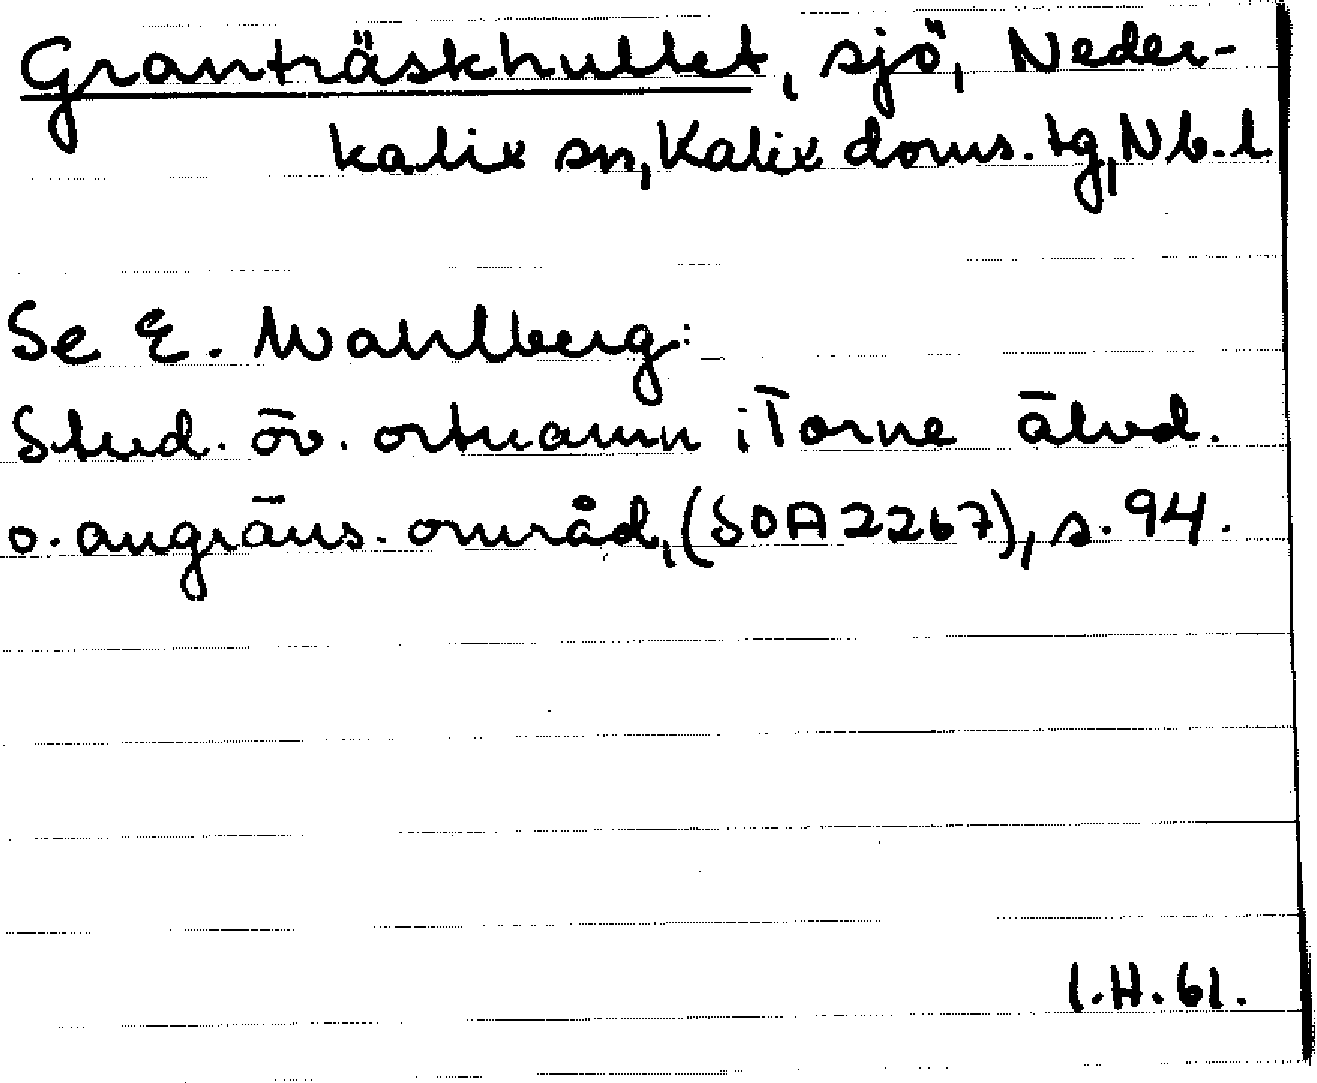 Granträskhullet, sjö, Neder-
kalix sn, Kalix doms. tg, Nb. l
Se E. Wahlberg:
Stud. öv. ortnamn i Torne älvd.
o. angräns. områd, (SOA 2267), s. 94.
I.H. 61.